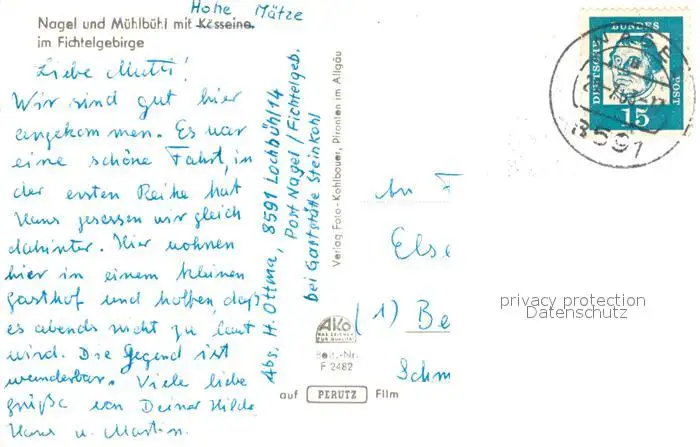 Hohe Mätze
Nagel und Mühlbühl mit Kösseine.
im Fichtelgebirge
Liebe Mutti!
Wir sind gut hier
angekommen. Es war
eine schöne Fahrt, in
der ersten Reihe hat
Hans gesessen wir gleich
dahinter. Hier wohnen
hier in einem kleinen
Gasthof und hoffen, daß
es abends nicht zu laut
wird. Die Gegend ist
wunderbar. Viele liebe
Grüße von Deiner Hilde
Hans u. Martin.
Abs. H. Ottma, 8591 Lochbühl 14
Post Nagel/Fichtelgeb.
bei Gaststätte Steinkohl
Verlag Foto-Kohlbauer, Pfronten im Allgäu
AKO
DAS ZEICHEN
FÜR QUALITÄT
Best.-Nr.
F 2482
auf PERUTZ Film
DEUTSCHE BUNDESPOST
15
NAGEL
8591
An
Else
(1) Be
Schm
privacy protection
Datenschutz